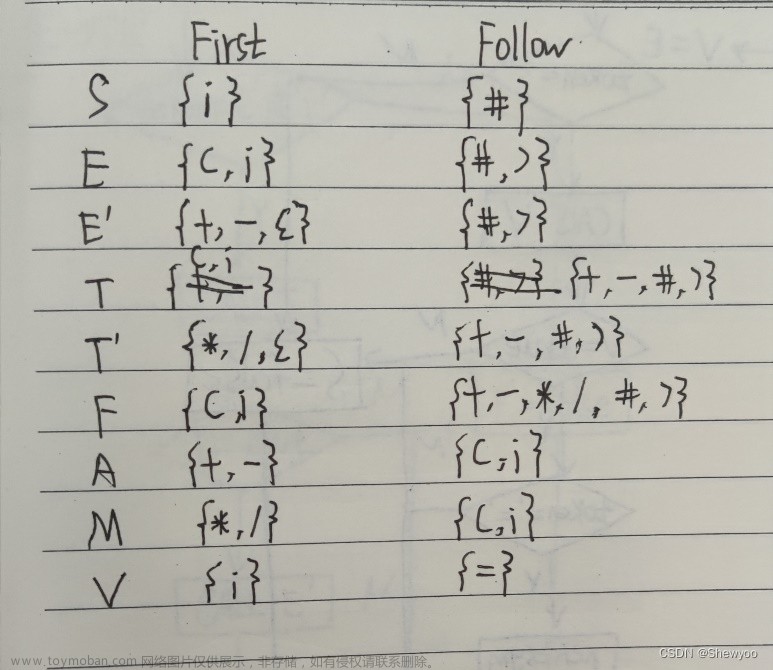 First Follow
S {i} {#}
E {(,i} {#,)}
E' {+,-,ε} {#,)}
T {(,i} {#,)} {+,-,#,)}
T' {*,/,ε} {+,-,#,)}
F {(,i} {+,-,*,/,#,)}
A {+,-} {(,i}
M {*,/} {(,i}
V {i} {=}
www.toymoban.com 网络图片仅供展示,非存储,如有侵权请联系删除。
CSDN @Shewyoo